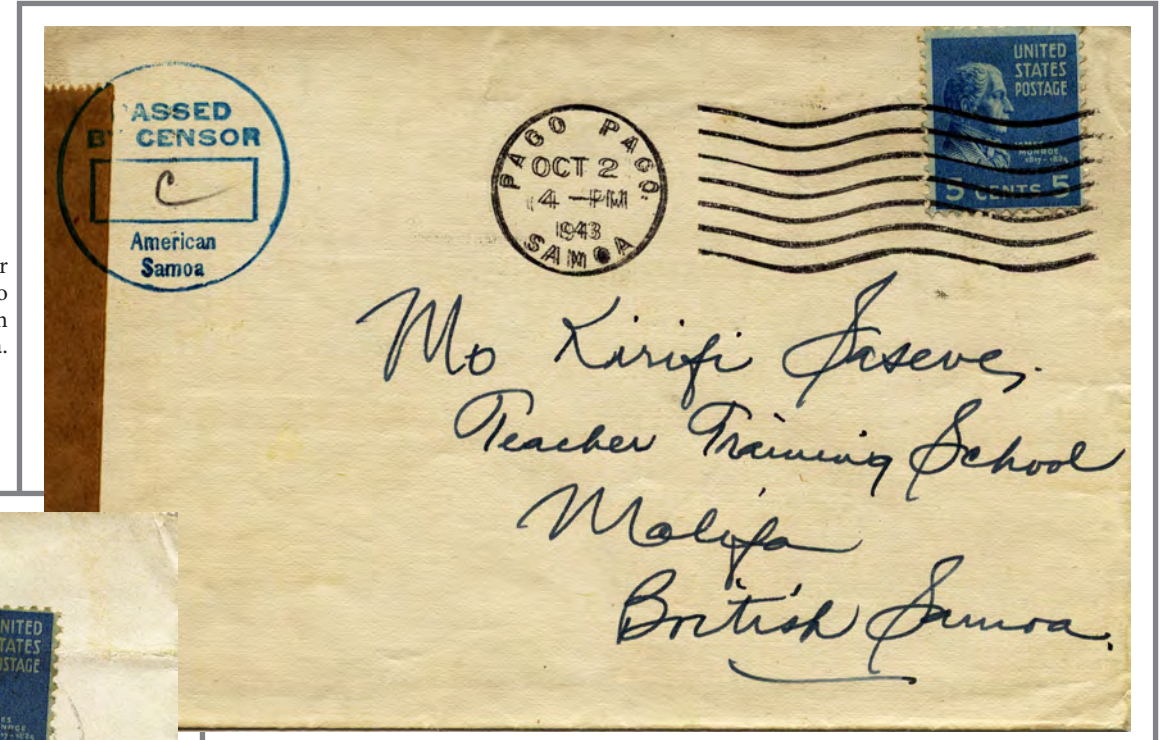 PASSED
BY CENSOR
C
American
Samoa
PAGO PAGO,
OCT 2
4 - PM
1943
SAMOA
UNITED
STATES
POSTAGE
JAMES
MONROE
1817-1824
5 CENTS 5
Mo Kirifi
Teacher Training School
Malifa
British Samoa.
NITED
TATES
STAGE